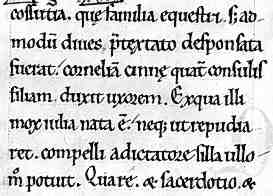 cossutia. quę familia equestri. s; ad
modū diues. p̄textato desponsata
fuerat. corneliā cinnę quat̄ consulis
filiam duxit uxorem. Ex qua illi
mox iulia nata ē. neq; ut repudia
ret. compelli a dictatore silla ullo
m̊ potuit. Quare. & sacerdotio. &